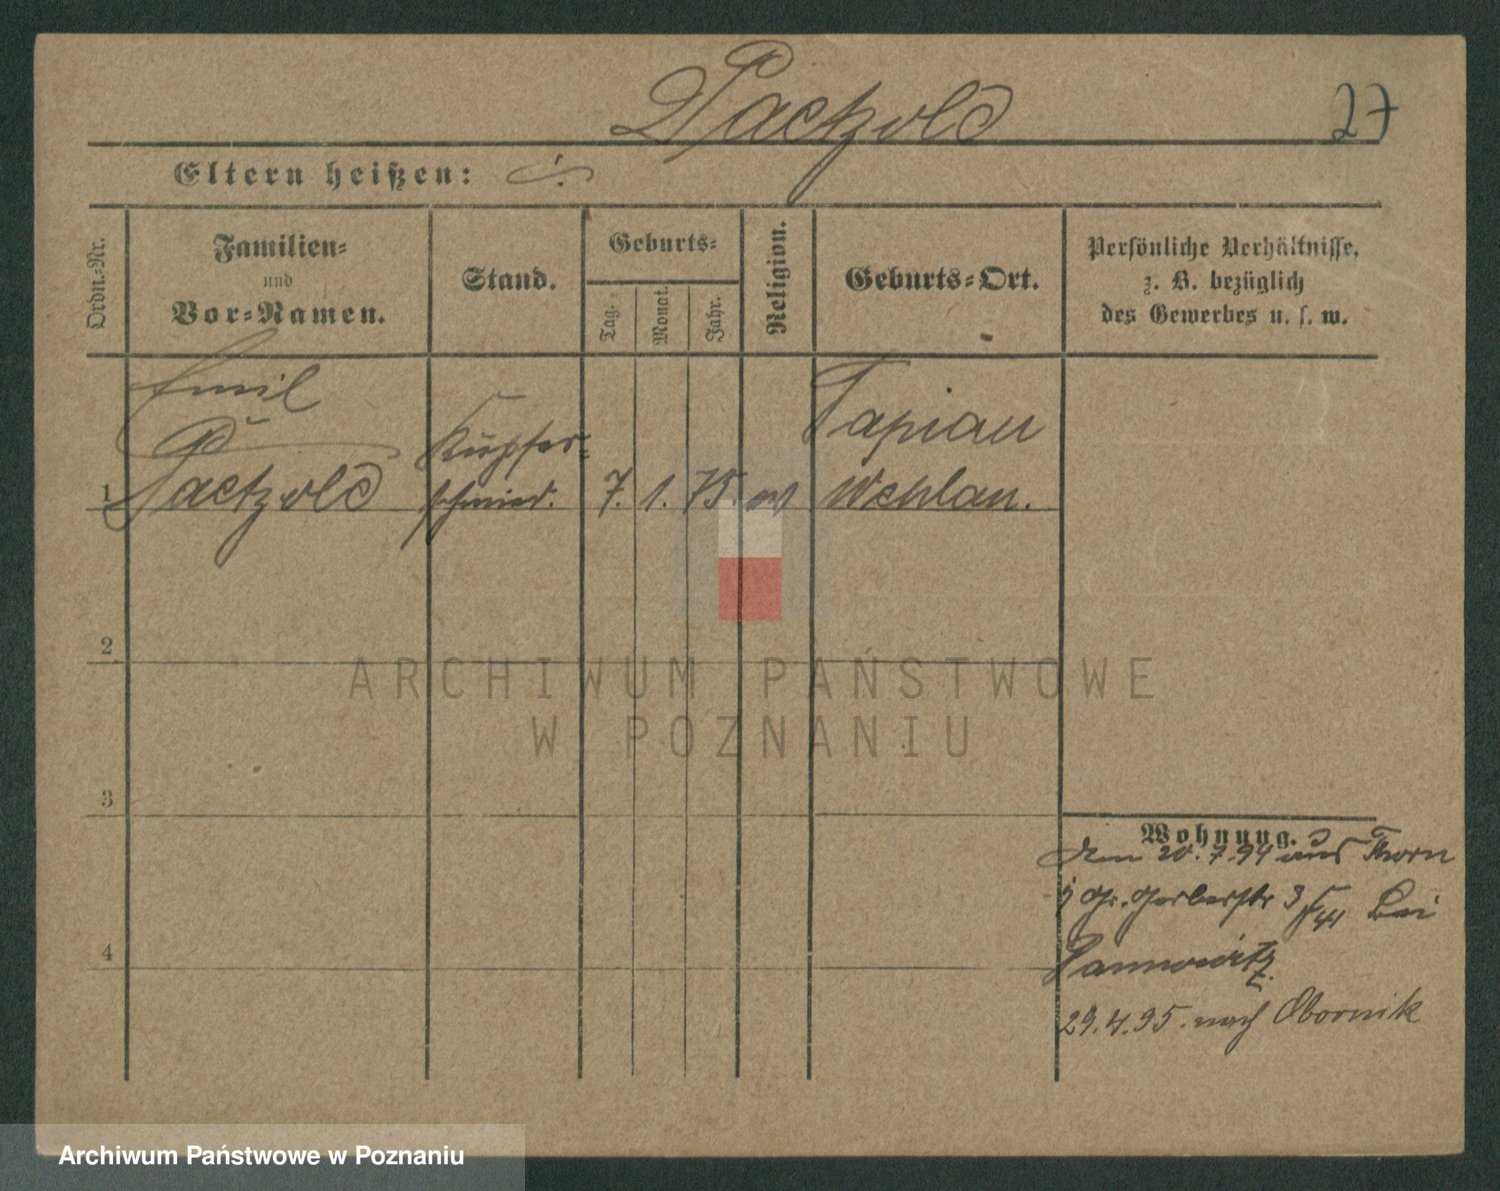 Paetzold
27
Eltern heißen: ÷
Ordn.-Nr.
Familien-
und
Vor-Namen.
Stand.
Geburts-
Tag.
Monat.
Jahr.
Religion.
Geburts-Ort.
Persönliche Verhältnisse,
z. B. bezüglich
des Gewerbes u. s. w.
1
Emil
Paetzold
Kupfer-
schmied.
7. 1. 75. ev
Tapiau
Wehlau.
2
3
4
Wohnung.
Den 20.7.94 aus Thorn
Gr. Gerberstr 3 bei
Pannwitz
29.4.95. nach Obornik
ARCHIWUM PAŃSTWOWE
W POZNANIU
Archiwum Państwowe w Poznaniu